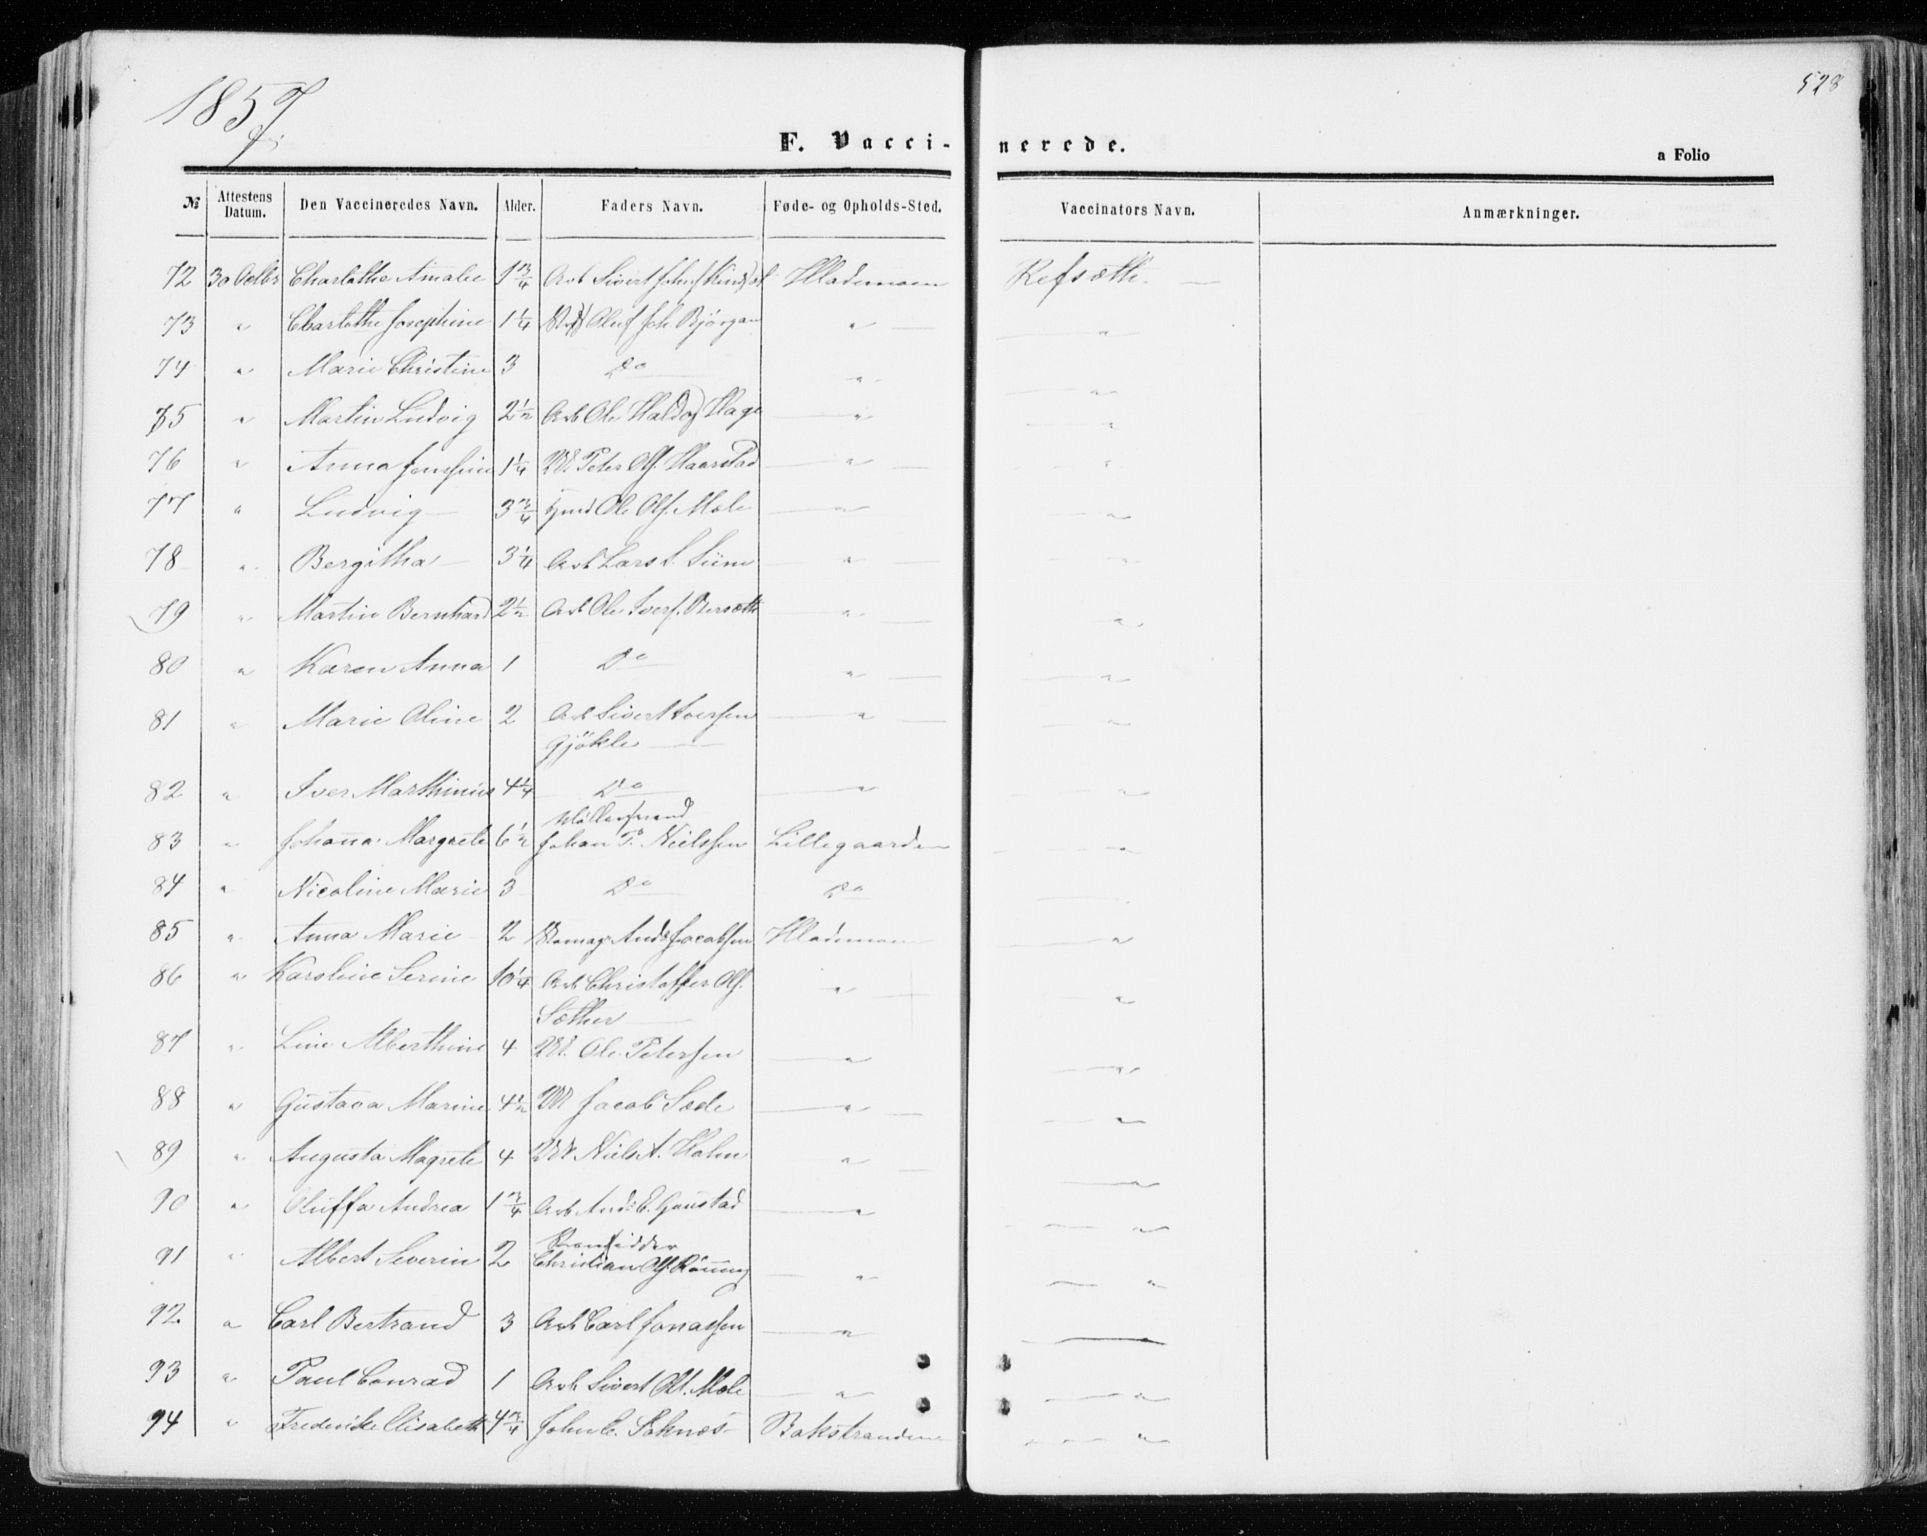 1857
528
F. Vaccinerede.
a Folio
№ Attestens Datum. Den Vaccineredes Navn. Alder. Faders Navn. Føde- og Opholds-Sted. Vaccinators Navn. Anmærkninger.
72 30 Octbr Charlotte Amalie 1 3/4 Arb Sivert Hlademoen Refsætth.
73 " Charlotte Josephine 1 1/4 Oluf Joh Bjørgan " "
74 " Marie Christine 3 Do " "
75 " Martin Ludvig 2 1/2 Arb Ole Haldos Hage " "
76 " Anna 1 1/4 Peter Olf. Haarstad " "
77 " Ludvig 3 3/4 Ole Olf. Mole " "
78 " Bergitha 3 1/4 Arb Lars L. Siim " "
79 " Martin Bernhard 2 1/2 Arb Ole Iverf. " "
80 " Karen Anna 1 Do " "
81 " Marie Oline 2 Arb Sivert Iversen " "
Gjökle
82 " Iver Marthinus 4 1/4 Do " "
Møllersvend
83 " Johanna Margrete 6 1/2 Johan P. Nielssen Lillegaarden "
84 " Nicoline Marie 3 Do Do "
85 " Anna Marie 2 Ands Jacobsen Hlademoen "
86 " Karoline Serine 10 1/4 Arb Christoffer Olf. " "
Sæther
87 " Line Alberthine 4 Ole Petersen " "
88 " Gustava Marine 4 1/2 Jacob Sæde " "
89 " Augusta Magrete 4 Niels A. Holm " "
90 " Oluffa Andrea 1 3/4 Arb And: E. Gaustad " "
Strandsidder
91 " Albert Severin 2 Christian Olf. Rönning " "
92 " Carl Bertrand 3 Arb Carl Jonassen "
93 " Paul Conrad 1 Arb Sivert Ol. Mole " "
94 " Frederikke Elisabeth 4 3/4 John E. Soknæs Bakstranden "